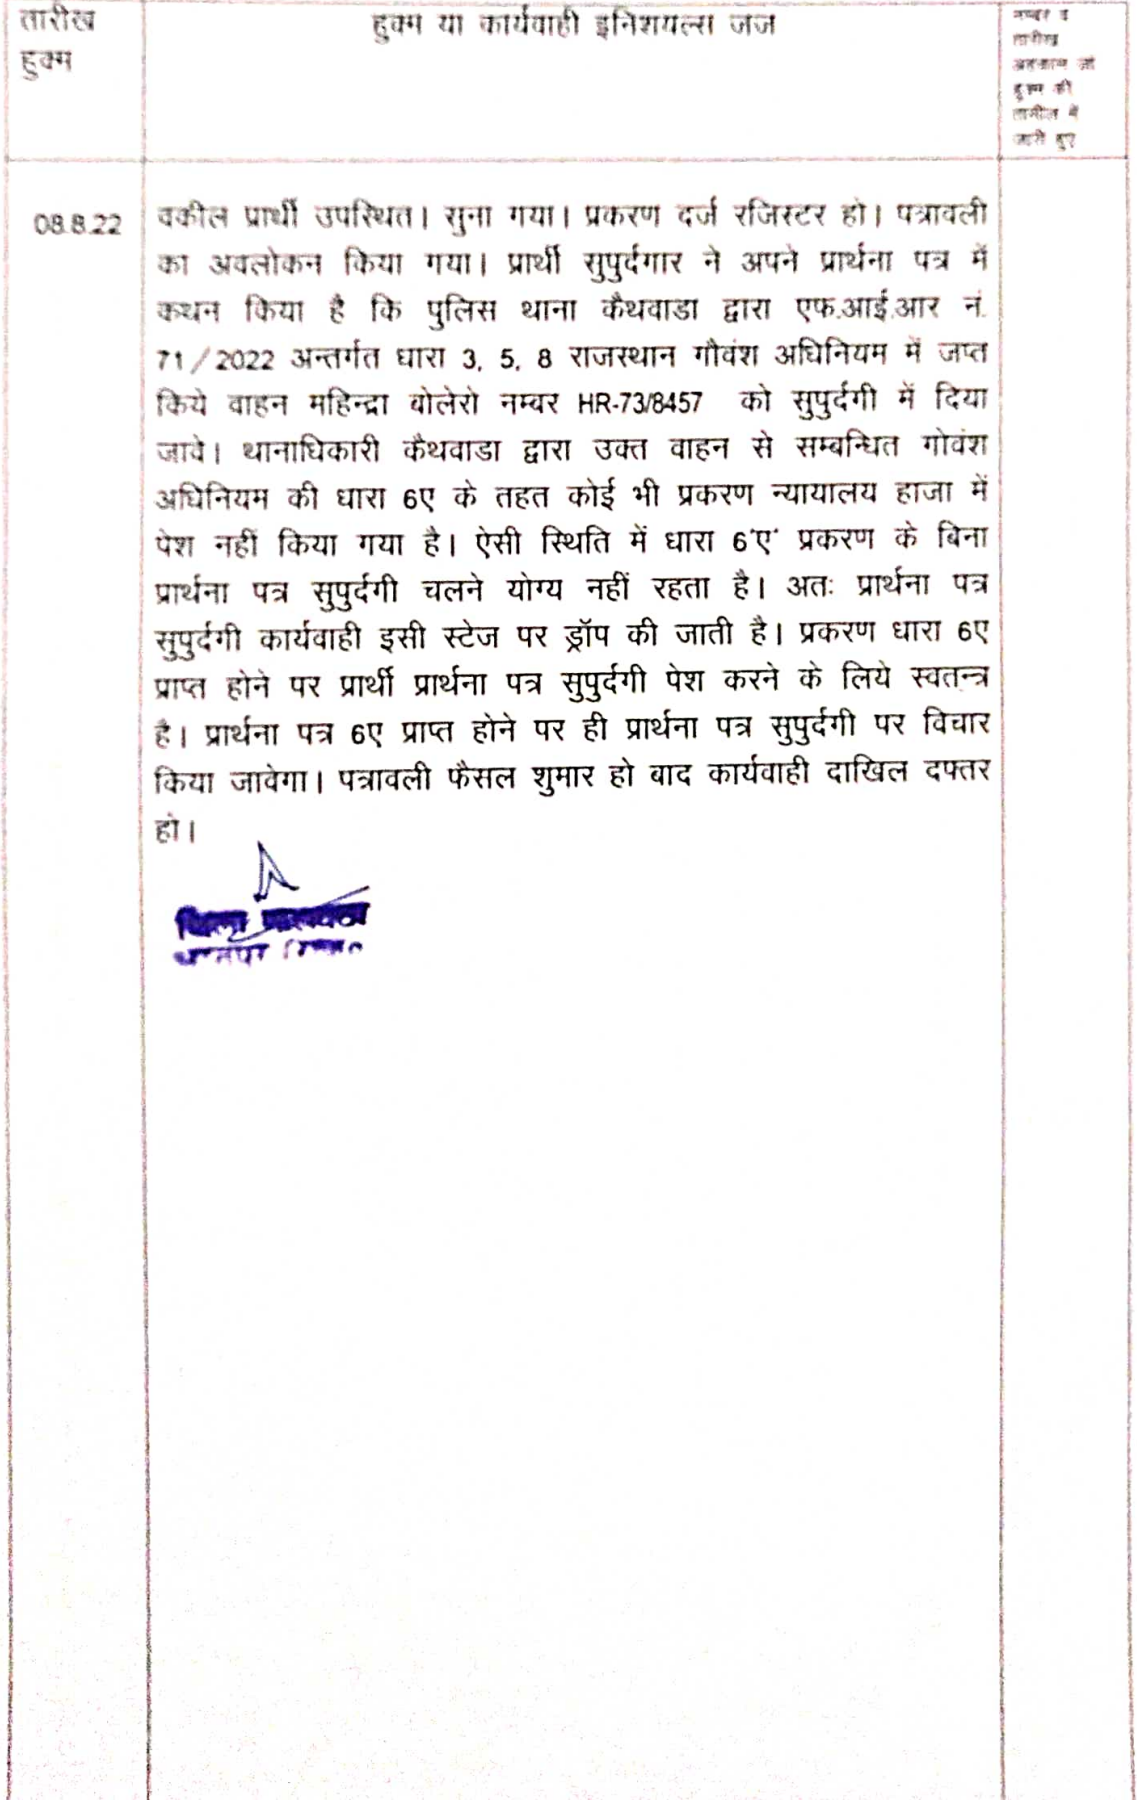 तारीख
हुक्म
हुक्म या कार्यवाही इनिशयल्स जज
नम्बर व
तारीख
अहकाम जो
हुक्म की
तामील में
जारी हुए
08.8.22
वकील प्रार्थी उपस्थित। सुना गया। प्रकरण दर्ज रजिस्टर हो। पत्रावली
का अवलोकन किया गया। प्रार्थी सुपुर्दगार ने अपने प्रार्थना पत्र में
कथन किया है कि पुलिस थाना कैथवाडा द्वारा एफ.आई.आर नं.
71/2022 अन्तर्गत धारा 3, 5, 8 राजस्थान गौवंश अधिनियम में जप्त
किये वाहन महिन्द्रा बोलेरो नम्बर HR-73/8457 को सुपुर्दगी में दिया
जावे। थानाधिकारी कैथवाडा द्वारा उक्त वाहन से सम्बन्धित गोवंश
अधिनियम की धारा 6ए के तहत कोई भी प्रकरण न्यायालय हाजा में
पेश नहीं किया गया है। ऐसी स्थिति में धारा 6'ए' प्रकरण के बिना
प्रार्थना पत्र सुपुर्दगी चलने योग्य नहीं रहता है। अतः प्रार्थना पत्र
सुपुर्दगी कार्यवाही इसी स्टेज पर ड्रॉप की जाती है। प्रकरण धारा 6ए
प्राप्त होने पर प्रार्थी प्रार्थना पत्र सुपुर्दगी पेश करने के लिये स्वतन्त्र
है। प्रार्थना पत्र 6ए प्राप्त होने पर ही प्रार्थना पत्र सुपुर्दगी पर विचार
किया जावेगा। पत्रावली फैसल शुमार हो बाद कार्यवाही दाखिल दफ्तर
हो।
जिला